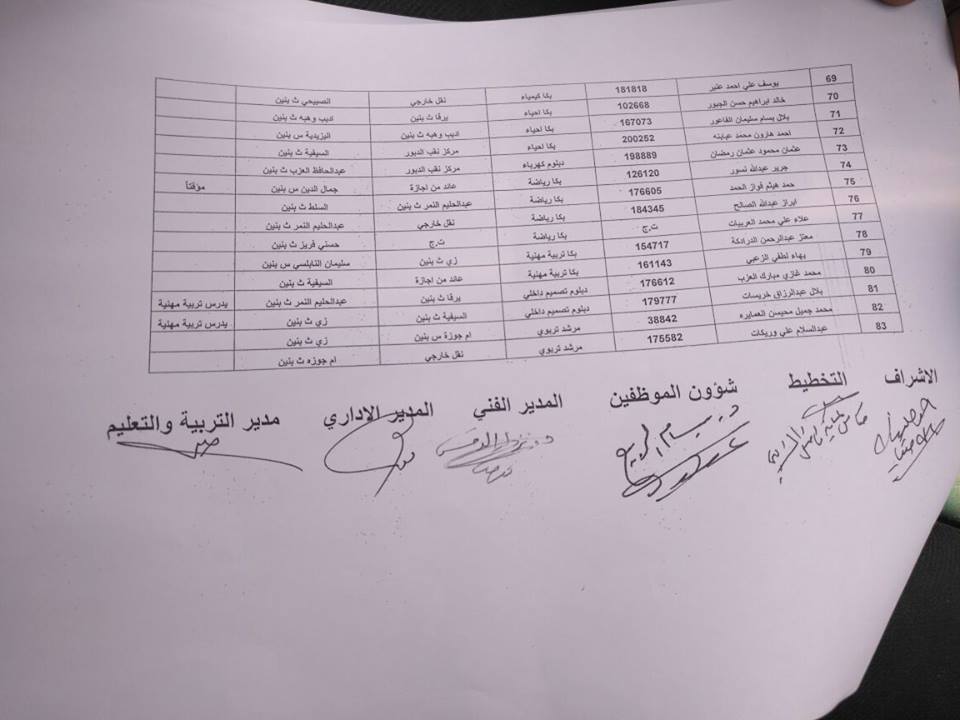 69 يوسف علي احمد عنبر 181818 بكا كيمياء نقل خارجي الصبيحي ث بنين
70 خالد ابراهيم حسن الجبور 102668 بكا احياء يرقا ث بنين اديب وهبه ث بنين
71 بلال بسام سليمان الفاعور 167073 بكا احياء اديب وهبه ث بنين اليزيدية س بنين
72 احمد هارون محمد عبابنه 200252 بكا احياء مركز نقب الدبور السيفية ث بنين
73 عثمان محمود عثمان رمضان 198889 دبلوم كهرباء مركز نقب الدبور عبدالحافظ العزب ث بنين
74 جرير عبدالله نسور 126120 بكا رياضة عائد من اجازة جمال الدين س بنين مؤقتاً
75 حمد هيثم فواز الحمد 176605 بكا رياضة عبدالحليم النمر ث بنين السلط ث بنين
76 ابراز عبدالله الصالح 184345 بكا رياضة نقل خارجي عبدالحليم النمر ث بنين
77 علاء علي محمد العربيات ت.ج بكا رياضة ت.ج حسني فريز ث بنين
78 معتز عبدالرحمن الدرادكة 154717 بكا تربية مهنية زي ث بنين سليمان النابلسي س بنين
79 بهاء لطفي الزعبي 161143 بكا تربية مهنية عائد من اجازة السيفية ث بنين
80 محمد غازي مبارك العزب 176612 دبلوم تصميم داخلي يرقا ث بنين عبدالحليم النمر ث بنين يدرس تربية مهنية
81 بلال عبدالرزاق خريسات 179777 دبلوم تصميم داخلي السيفية ث بنين زي ث بنين يدرس تربية مهنية
82 محمد جميل محيسن العمايره 38842 مرشد تربوي ام جوزة س بنين زي ث بنين
83 عبدالسلام علي وريكات 175582 مرشد تربوي نقل خارجي ام جوزه ث بنين
الاشراف التخطيط شؤون الموظفين المدير الفني المدير الاداري مدير التربية والتعليم